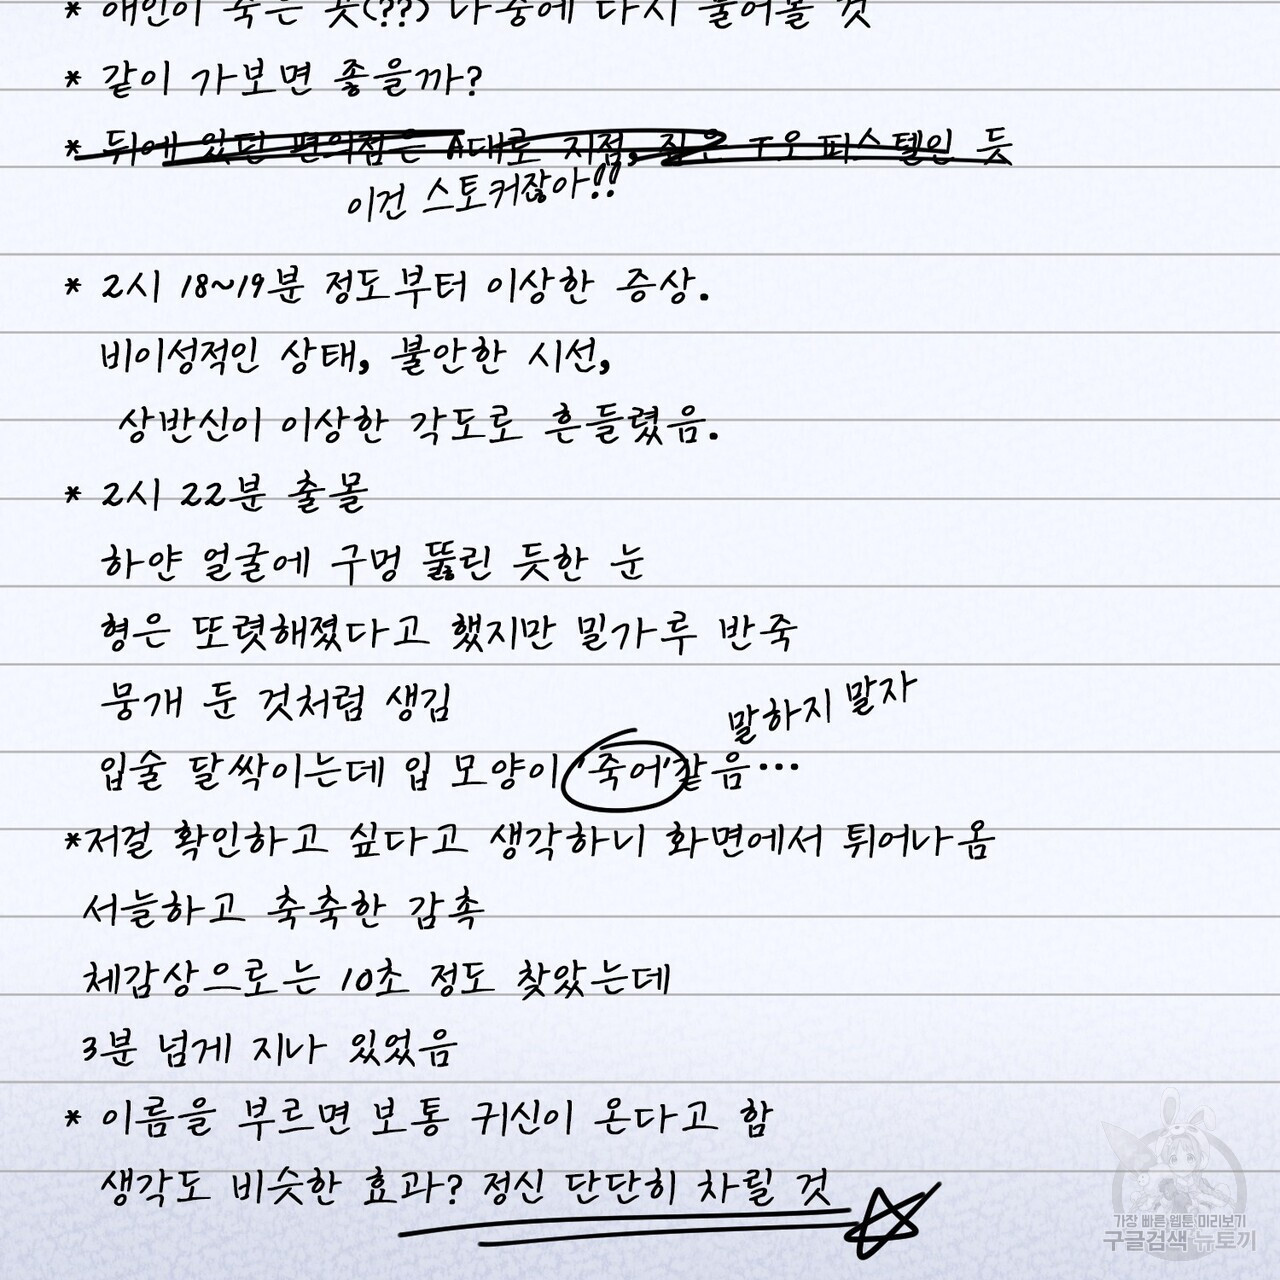 * 애인이 죽은 곳(??) 나중에 다시 물어볼 것
* 같이 가보면 좋을까?
* 뒤에 있던 편의점은 A대로 지점, 짙은 T오피스텔인 듯
이건 스토커잖아!!
* 2시 18~19분 정도부터 이상한 증상.
비이성적인 상태, 불안한 시선,
상반신이 이상한 각도로 흔들렸음.
* 2시 22분 출몰
하얀 얼굴에 구멍 뚫린 듯한 눈
형은 또렷해졌다고 했지만 밀가루 반죽
뭉개 둔 것처럼 생김
말하지 말자
입술 달싹이는데 입 모양이 '죽어'같음…
*저걸 확인하고 싶다고 생각하니 화면에서 튀어나옴
서늘하고 축축한 감촉
체감상으로는 10초 정도 찾았는데
3분 넘게 지나 있었음
* 이름을 부르면 보통 귀신이 온다고 함
생각도 비슷한 효과? 정신 단단히 차릴 것
가장 빠른 웹툰 미리보기
구글검색 뉴토끼